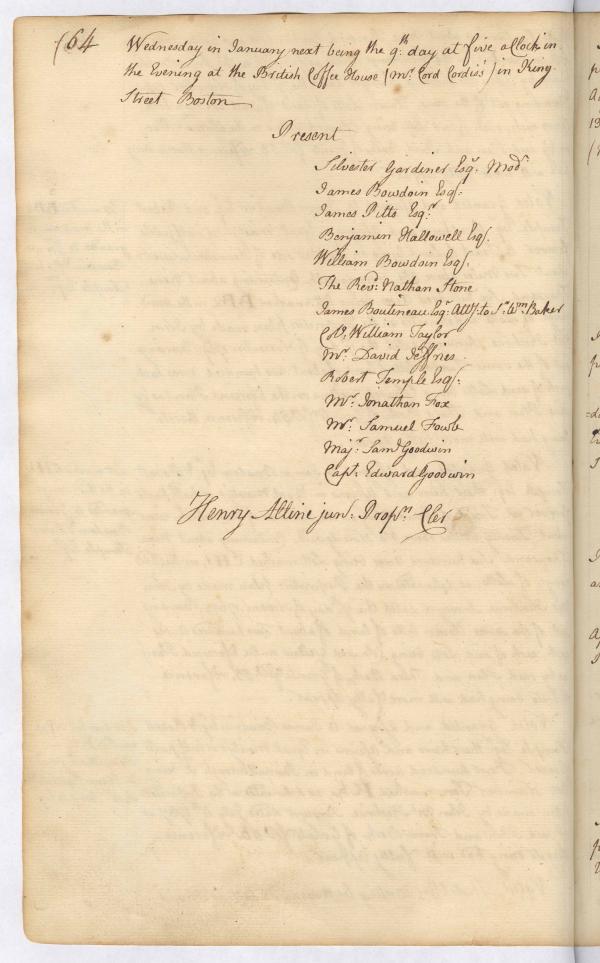 (64
Wednesday in January next being the 9th. day at five aClock in
the Evening at the British Coffee House (Mr. Cord Cordiss') in King
Street Boston
Present
Silvester Gardiner Esqr. Modr.
James Bowdoin Esqr.
James Pitts Esqr.
Benjamin Hallowell Esqr.
William Bowdoin Esqr.
The Revd. Nathan Stone
James Boutineau Esqr. Atty. to Sr. Wm. Baker
Colo. William Taylor
Mr. David Jeffries
Robert Temple Esqr.
Mr. Jonathan Fox
Mr. Samuel Fowle
Majr. Saml Goodwin
Capt. Edward Goodwin
Henry Alline junr. Proprs. Cler